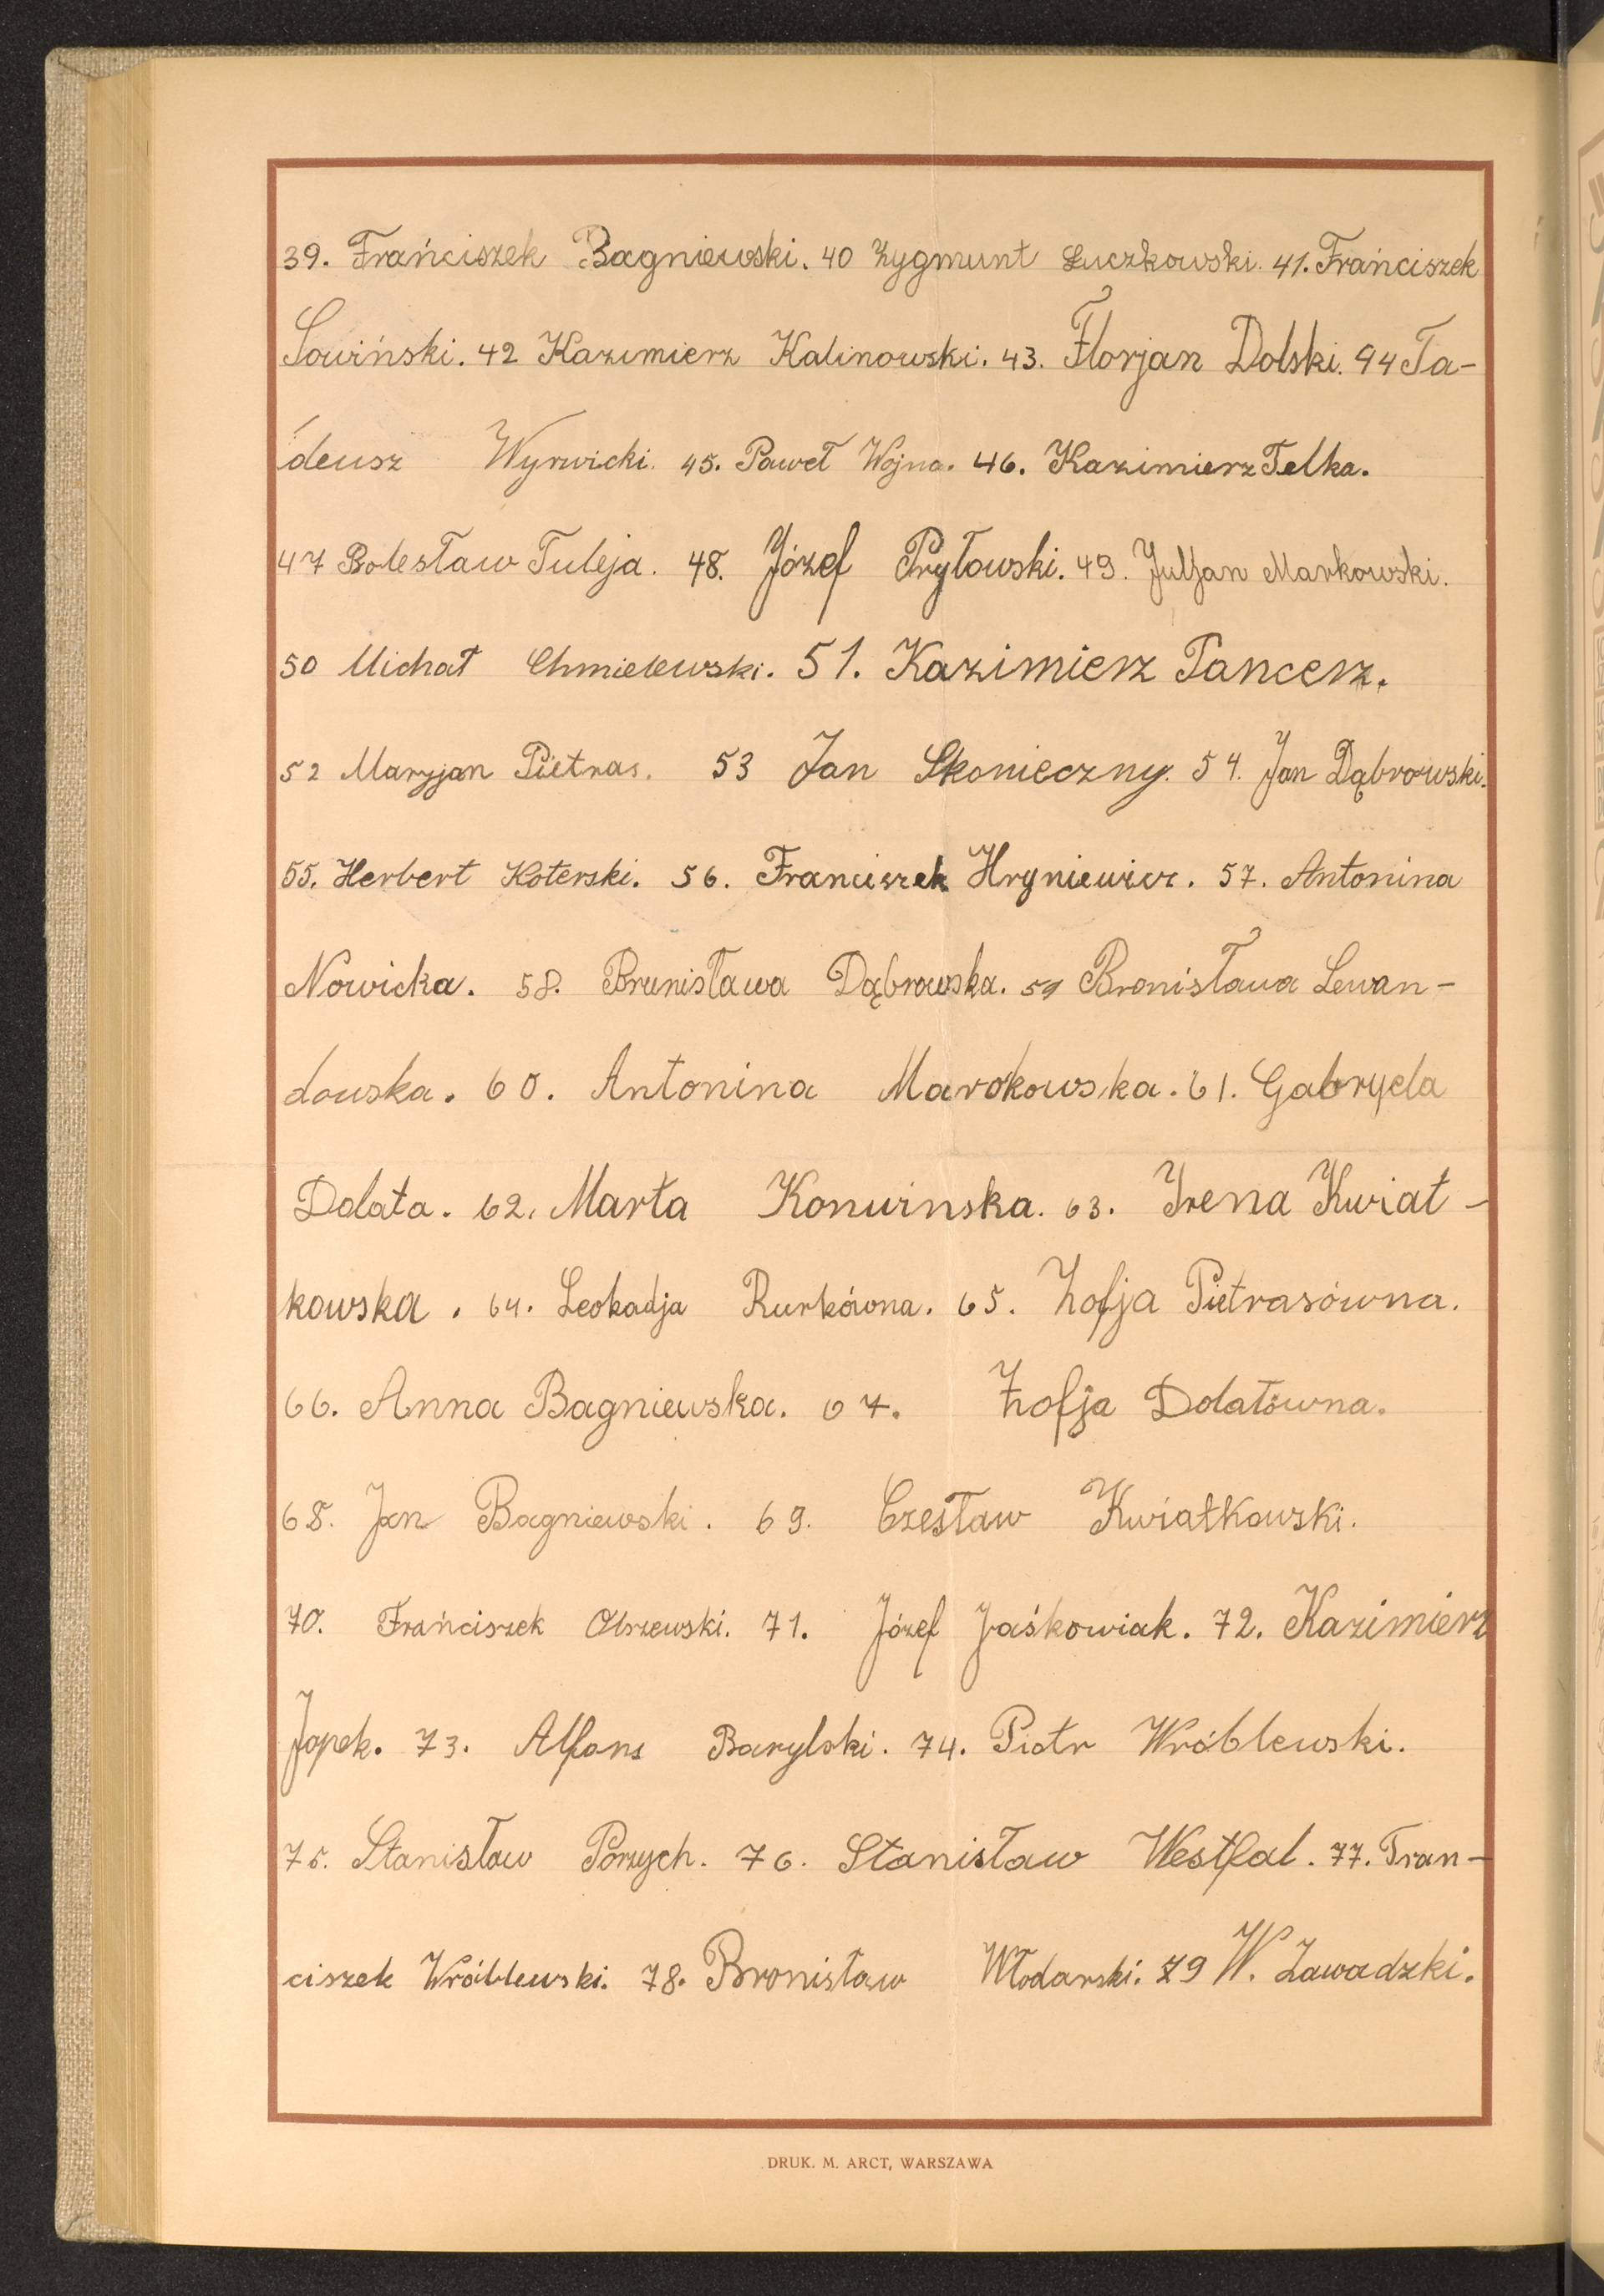 39. Frańciszek Bagniewski. 40 Zygmunt Łuczkowski. 41. Frańciszek
Sowiński. 42 Kazimierz Kalinowski. 43. Florjan Dolski. 44 Ta-
deusz Wyrwicki. 45. Paweł Wojna. 46. Kazimierz Telka.
47 Bolesław Tuleja. 48. Józef Pryłowski. 49. Juljan Markowski.
50 Michał Chmielewski. 51. Kazimierz Pancerz.
52 Maryjan Pietras. 53 Jan Skonieczny. 54. Jan Dąbrowski.
55. Herbert Koterski. 56. Franciszek Hryniewicz. 57. Antonina
Nowicka. 58. Brunisława Dąbrowska. 59 Bronisława Lewan-
dowska. 60. Antonina Marokowska. 61. Gabryela
Dolata. 62. Marta Konwinska. 63. Irena Kwiat-
kowska. 64. Leokadja Rurkówna. 65. Zofja Pietrasówna.
66. Anna Bagniewska. 67. Zofja Dolatówna.
68. Jan Bagniewski. 69. Czesław Kwiatkowski.
70. Frańciszek Olszewski. 71. Józef Jaśkowiak. 72. Kazimierz
Japek. 73. Alfons Barylski. 74. Piotr Wróblewski.
75. Stanisław Porzych. 76. Stanisław Westfal. 77. Fran-
ciszek Wróblewski. 78. Bronisław Włodarski. 79 W. Zawadzki.
DRUK. M. ARCT, WARSZAWA